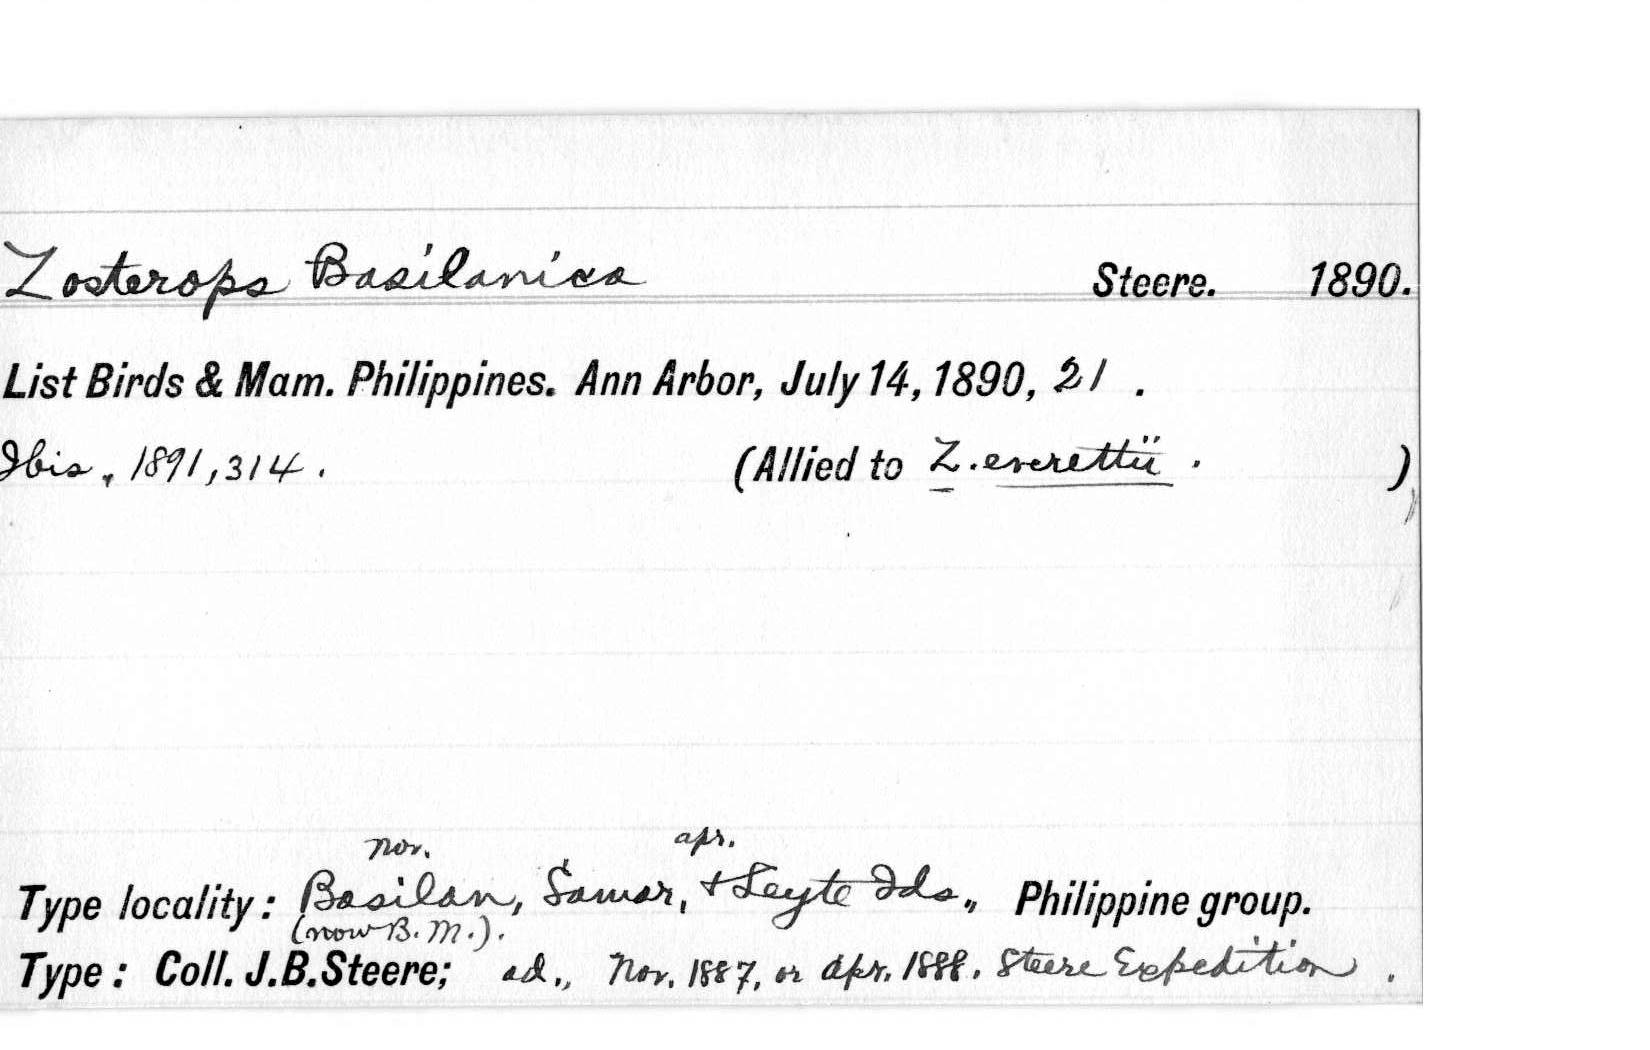 Zosterops Basilanica Steere. 1890.
List Birds & Mam. Philippines. Ann Arbor, July 14, 1890, 21 .
Ibis, 1891, 314. (Allied to Z. everettii . )
Nov. Apr.
Type locality: Basilan, Samar, + Leyte Ids., Philippine group.
(now B.M.).
Type: Coll. J.B.Steere; ad., Nov. 1887, or Apr. 1888. Steere Expedition .